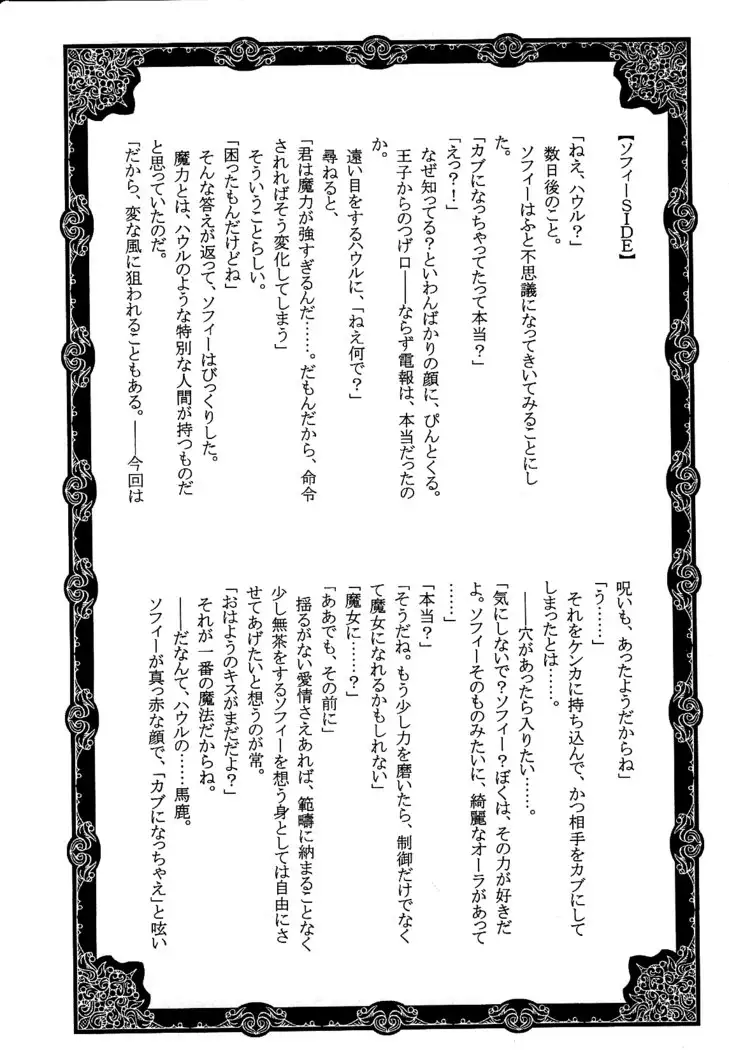 【ソフィーSIDE】
「ねえ、ハウル？」
数日後のこと。
ソフィーはふと不思議になってきいてみることにし
た。
「カブになっちゃってたって本当？」
「えっ？！」
なぜ知ってる？といわんばかりの顔に、ぴんとくる。
王子からのつげ口――ならず電報は、本当だったの
か。
遠い目をするハウルに、「ねえ何で？」
尋ねると、
「君は魔力が強すぎるんだ……。だもんだから、命令
されればそう変化してしまう」
そういうことらしい。
「困ったもんだけどね」
そんな答えが返って、ソフィーはびっくりした。
魔力とは、ハウルのような特別な人間が持つものだ
と思っていたのだ。
「だから、変な風に狙われることもある。――今回は
呪いも、あったようだからね」
「う……」
それをケンカに持ち込んで、かつ相手をカブにして
しまったとは……。
――穴があったら入りたい……。
「気にしないで？ソフィー？ぼくは、その力が好きだ
よ。ソフィーそのものみたいに、綺麗なオーラがあって
……」
「本当？」
「そうだね。もう少し力を磨いたら、制御だけでなく
て魔女になれるかもしれない」
「魔女に……？」
「ああでも、その前に」
揺るがない愛情さえあれば、範疇に納まることなく
少し無茶をするソフィーを想う身としては自由にさ
せてあげたいと想うのが常。
「おはようのキスがまだだよ？」
それが一番の魔法だからね。
――だなんて、ハウルの……馬鹿。
ソフィーが真っ赤な顔で、「カブになっちゃえ」と呟い